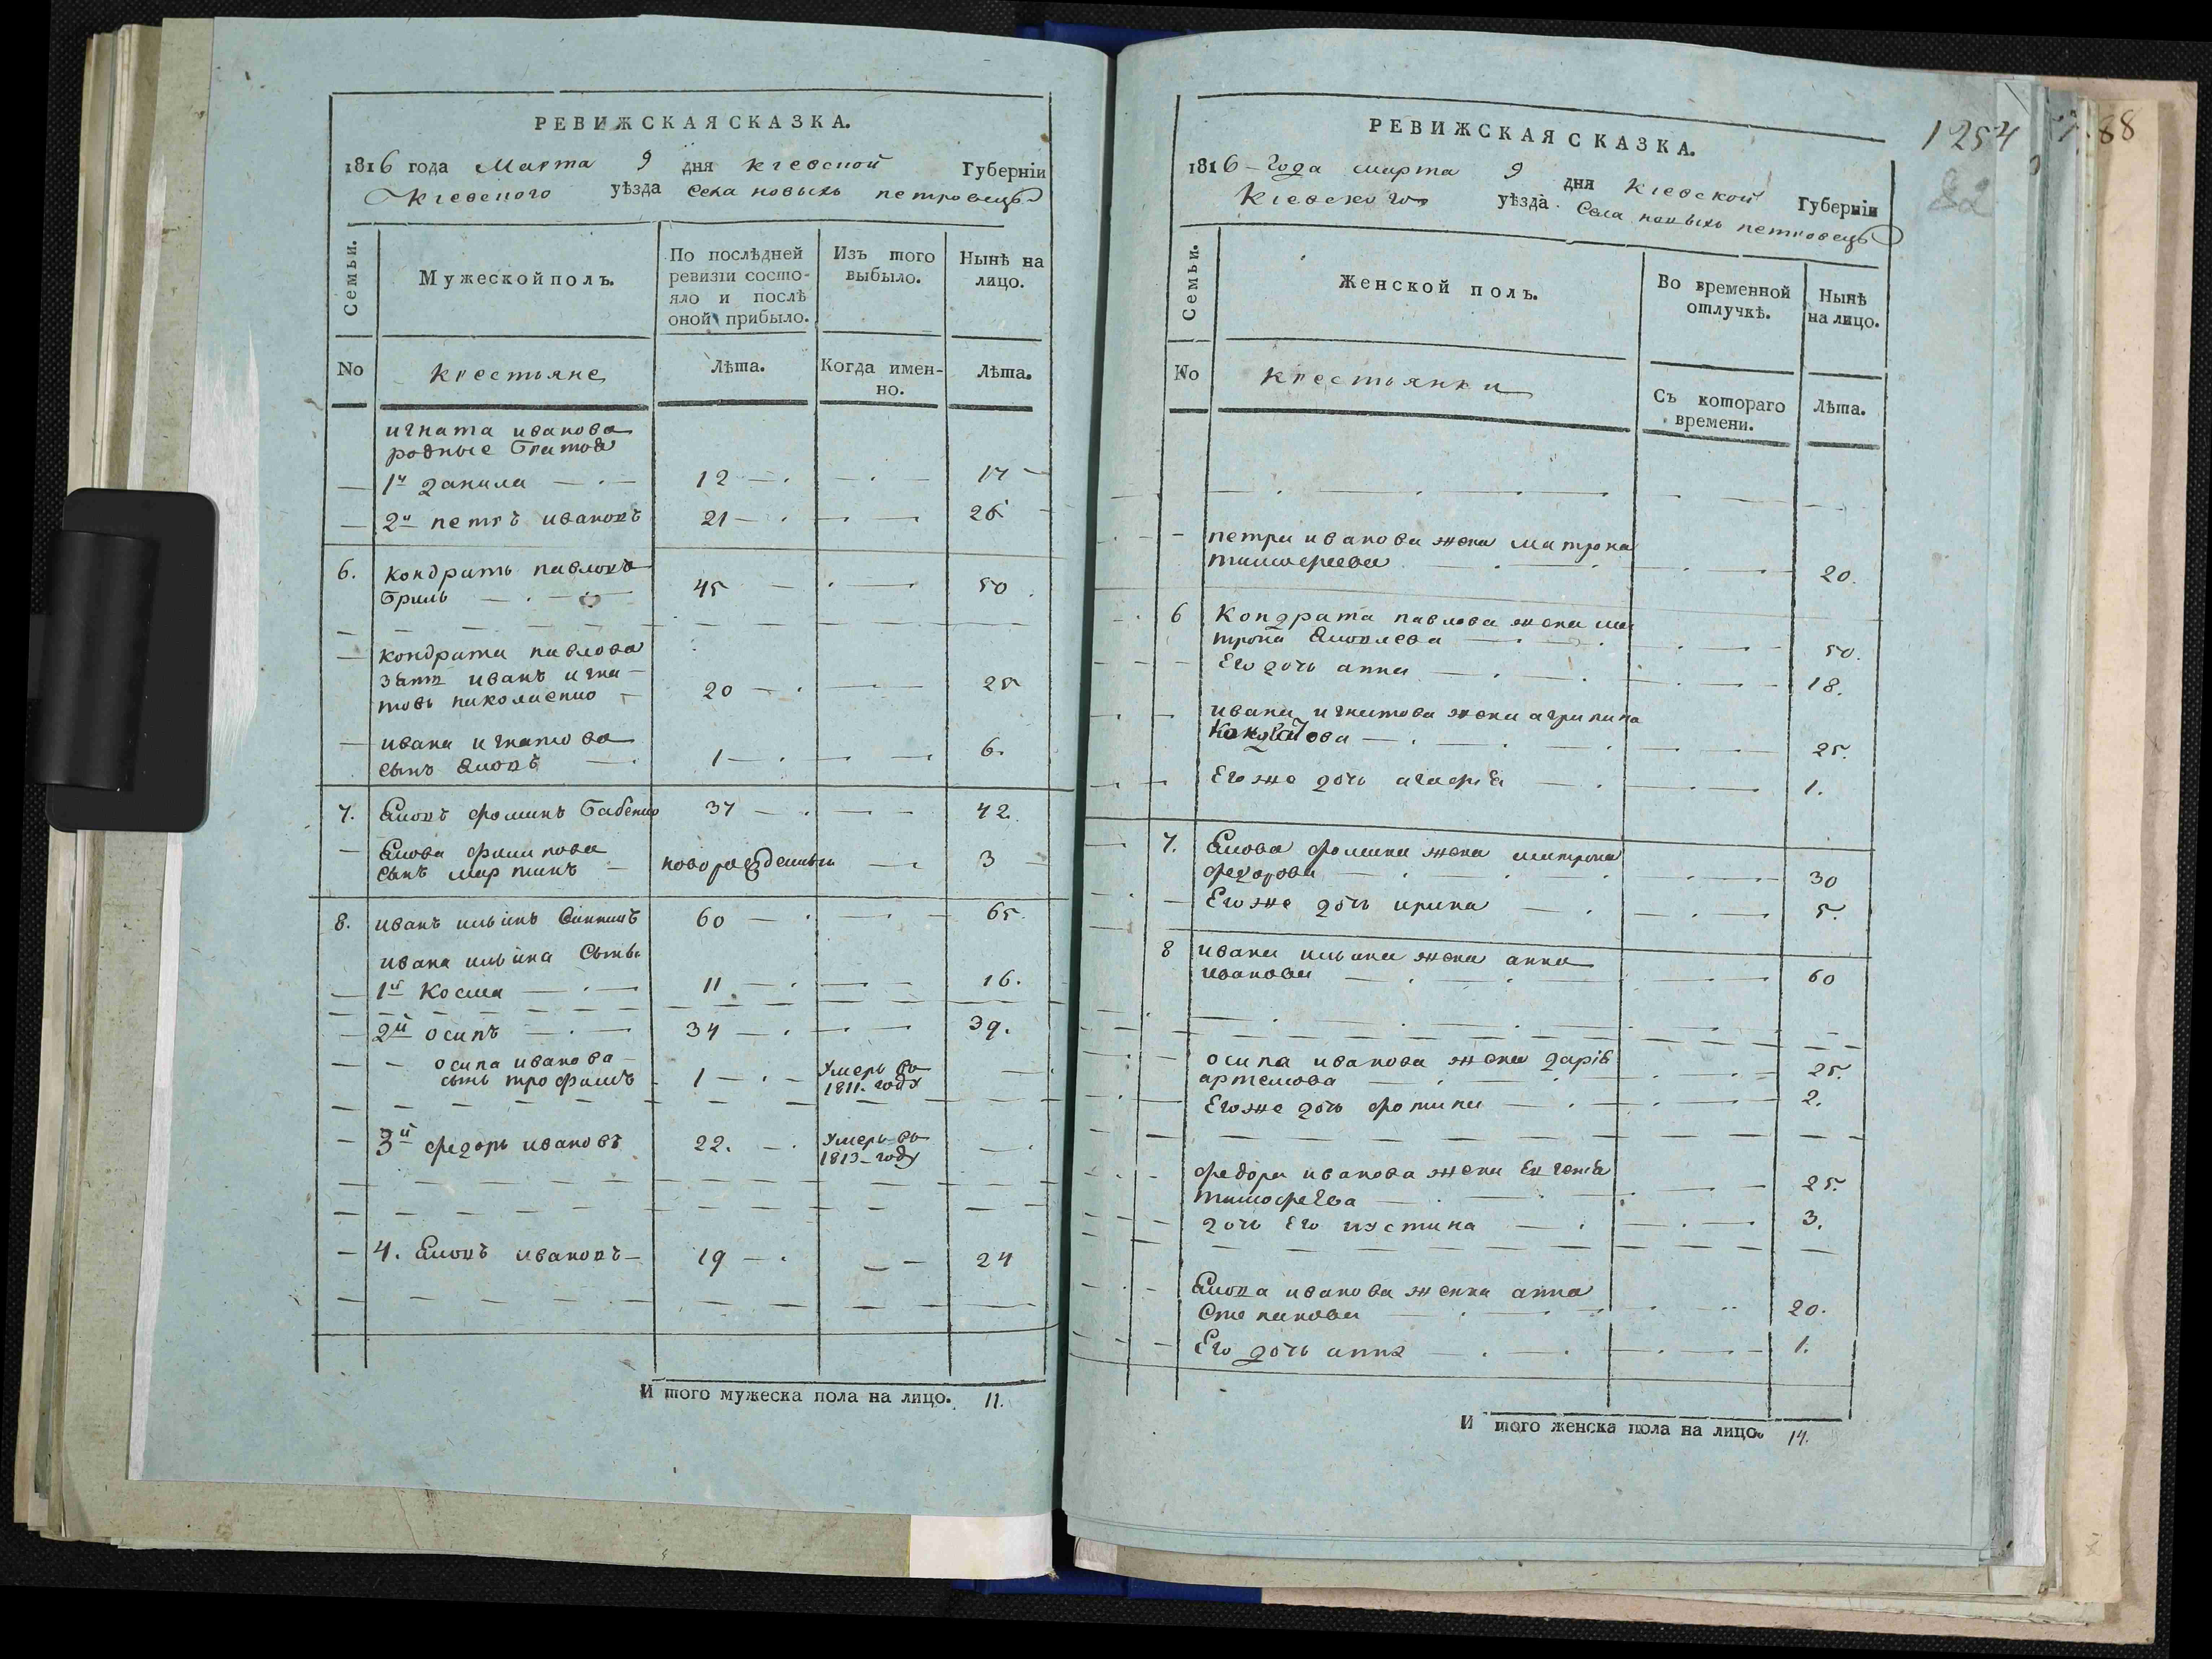 РЕВИЖСКАЯ СКАЗКА.
1816 года Марта 9 дня кіевской Губерніи
Кіевского уѣзда Села новыхъ петровецъ
Семьи.
Мужеской полъ.
По послѣдней
ревизіи состо-
яло и послѣ
оной прибыло.
Изъ того
выбыло.
Нынѣ на
лицо.
No
крестьяне
Лѣта.
Когда имен-
но.
Лѣта.
игната иванова
родные братья
1й данила 12 17
2й петръ ивановъ 21 26
6. кондратъ павловъ
Бриль 45 50
кондрата павлова
зять иванъ игна-
товъ николаенко 20 25
ивана игнатова
сынъ яковъ 1 6.
7. Яковъ фоминъ бабенко 37 42.
Якова
сынъ мартинъ новорожденный 3
8. иванъ ильинъ 60 65.
ивана ильина сыны
1й Косма 11 16.
2й осипъ 34 39.
осипа иванова
сынъ трофимъ 1 Умеръ въ
1811. году
3й федоръ ивановъ 22. Умеръ въ
1813 году
4. Яковъ ивановъ 19 24
И того мужеска пола на лицо. 11.
РЕВИЖСКАЯ СКАЗКА.
1254
88
82
1816 года марта 9 дня Кіевской Губерніи
Кіевского уѣзда Села новыхъ петровецъ
Семьи.
Женской полъ.
Во временной
отлучкѣ.
Нынѣ
на лицо.
No
крестьянки
Съ котораго
времени.
Лѣта.
петра иванова жена матрона
тимофеева 20.
6 Кондрата павлова жена ма
трона Яковлева 50.
Его дочь анна 18.
ивана игнатова жена агрипина
25.
Его же дочь агафія 1.
7. Якова фомина жена матрона
федорова 30
Его же дочь ирина 5.
8 ивана ильина жена анна
иванова 60
осипа иванова жена дарія
артемова 25.
Его же дочь фотина 2.
федора иванова жена Евгенія
тимофеева 25.
дочь Его иустина 3.
Якова иванова женка анна
Степанова 20.
Его дочь анна 1.
И того женска пола на лицо. 14.